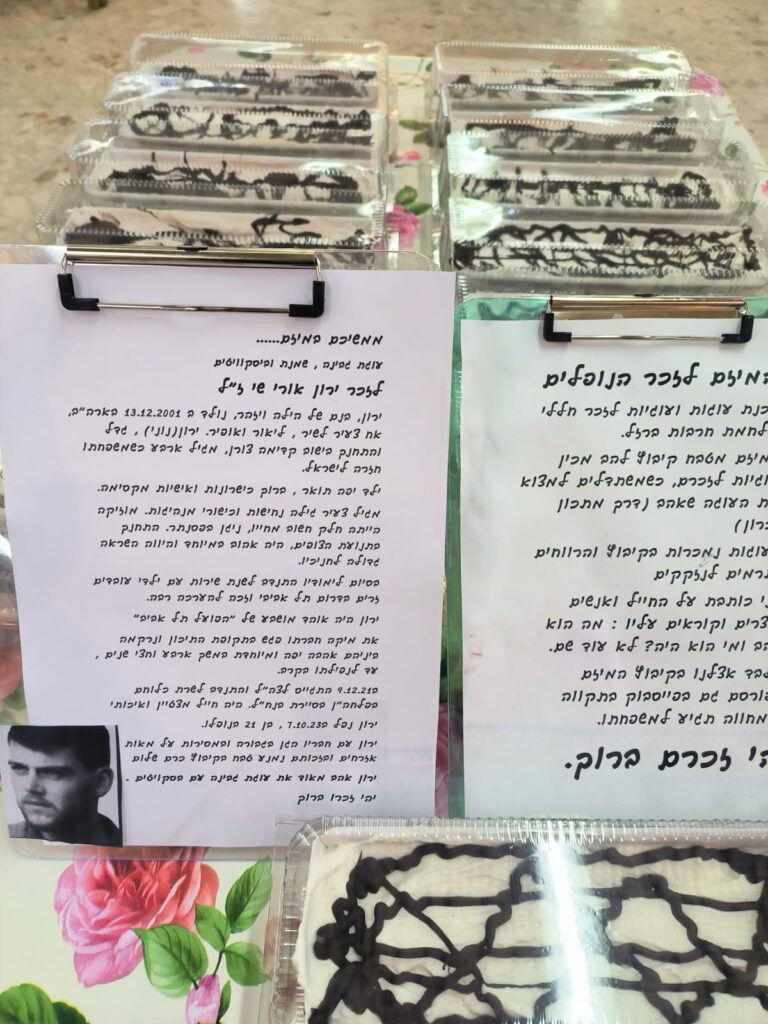 ממשיכם במיזם......
עוגת גבינה , שמנת וביסקוויטים
לזכר ירון אורי שי ז״ל
ירון, בנם של הילה ויזהר, נולד ב 13.12.2001 בארה״ב,
אח צעיר לשיר , ליאור ואופיר. ירון(נוני) , גדל
והתחנק בישוב קדימה צורן, מגיל ארבע כשמשפחתו
חזרה לישראל.
ילד יפה תואר , ברוך כישרונות ואישיות מקסימה.
מגיל צעיר גילה נחישות וכישורי מנהיגות. מוזיקה
הייתה חלק חשוב מחייו, ניגן בפסנתר. התחנק
בתנועת הצופים, היה אהוב במיוחד והיווה השראה
גדולה לחניכיו.
בסיום לימודיו התנדב לשנת שירות עם ילדי עובדים
זרים בדרום תל אביבי וזכה להערכה רבה.
ירון היה אוהד מושבע של ״הפועל תל אביב״
את מיקה חברתו פגש בתקופת התיכון ונרקמה
ביניהם אהבה יפה ומיוחדת במשך ארבע וחצי שנים ,
עד לנפילתו בקרב.
ב9.12.21 התגייס לצה״ל והתנדב לשרת כלוחם
בפלחה״ן בסיירת בנח״ל. היה חייל מצטיין ואיכותי
ירון נפל ב7.10.23 , בן 21 בנופלו.
ירון עם חבריו הגן בגבורה ובמסירות על מאות
אזרחים ובזכותם נמנע טבח בקיבוץ כרם שלום
ירון אהב מאוד את עוגת גבינה עם בסקויטים .
יהי זכרו ברוך
המיזם לזכר הנופלים
כנת עוגות ועוגיות לזכר חללי
לחמת חרבות ברזל.
מיזם מטבח קיבוץ להב מכין
וגיות לזכרם, כשמשתדלים למצוא
ת העוגה שאהב (דרך מתכון
כרון)
עוגות נמכרות בקיבוץ והרווחים
תרמים לנזקקים
ני כותבת על החייל ואנשים
צרים וקוראים עליו : מה הוא
הב ומי הוא היה? לא עוד שם.
לבד אצלנו בקיבוץ המיזם
פורסם גם בפייסבוק בתקווה
מחווה תגיע למשפחתו.
הי זכרם ברוך.